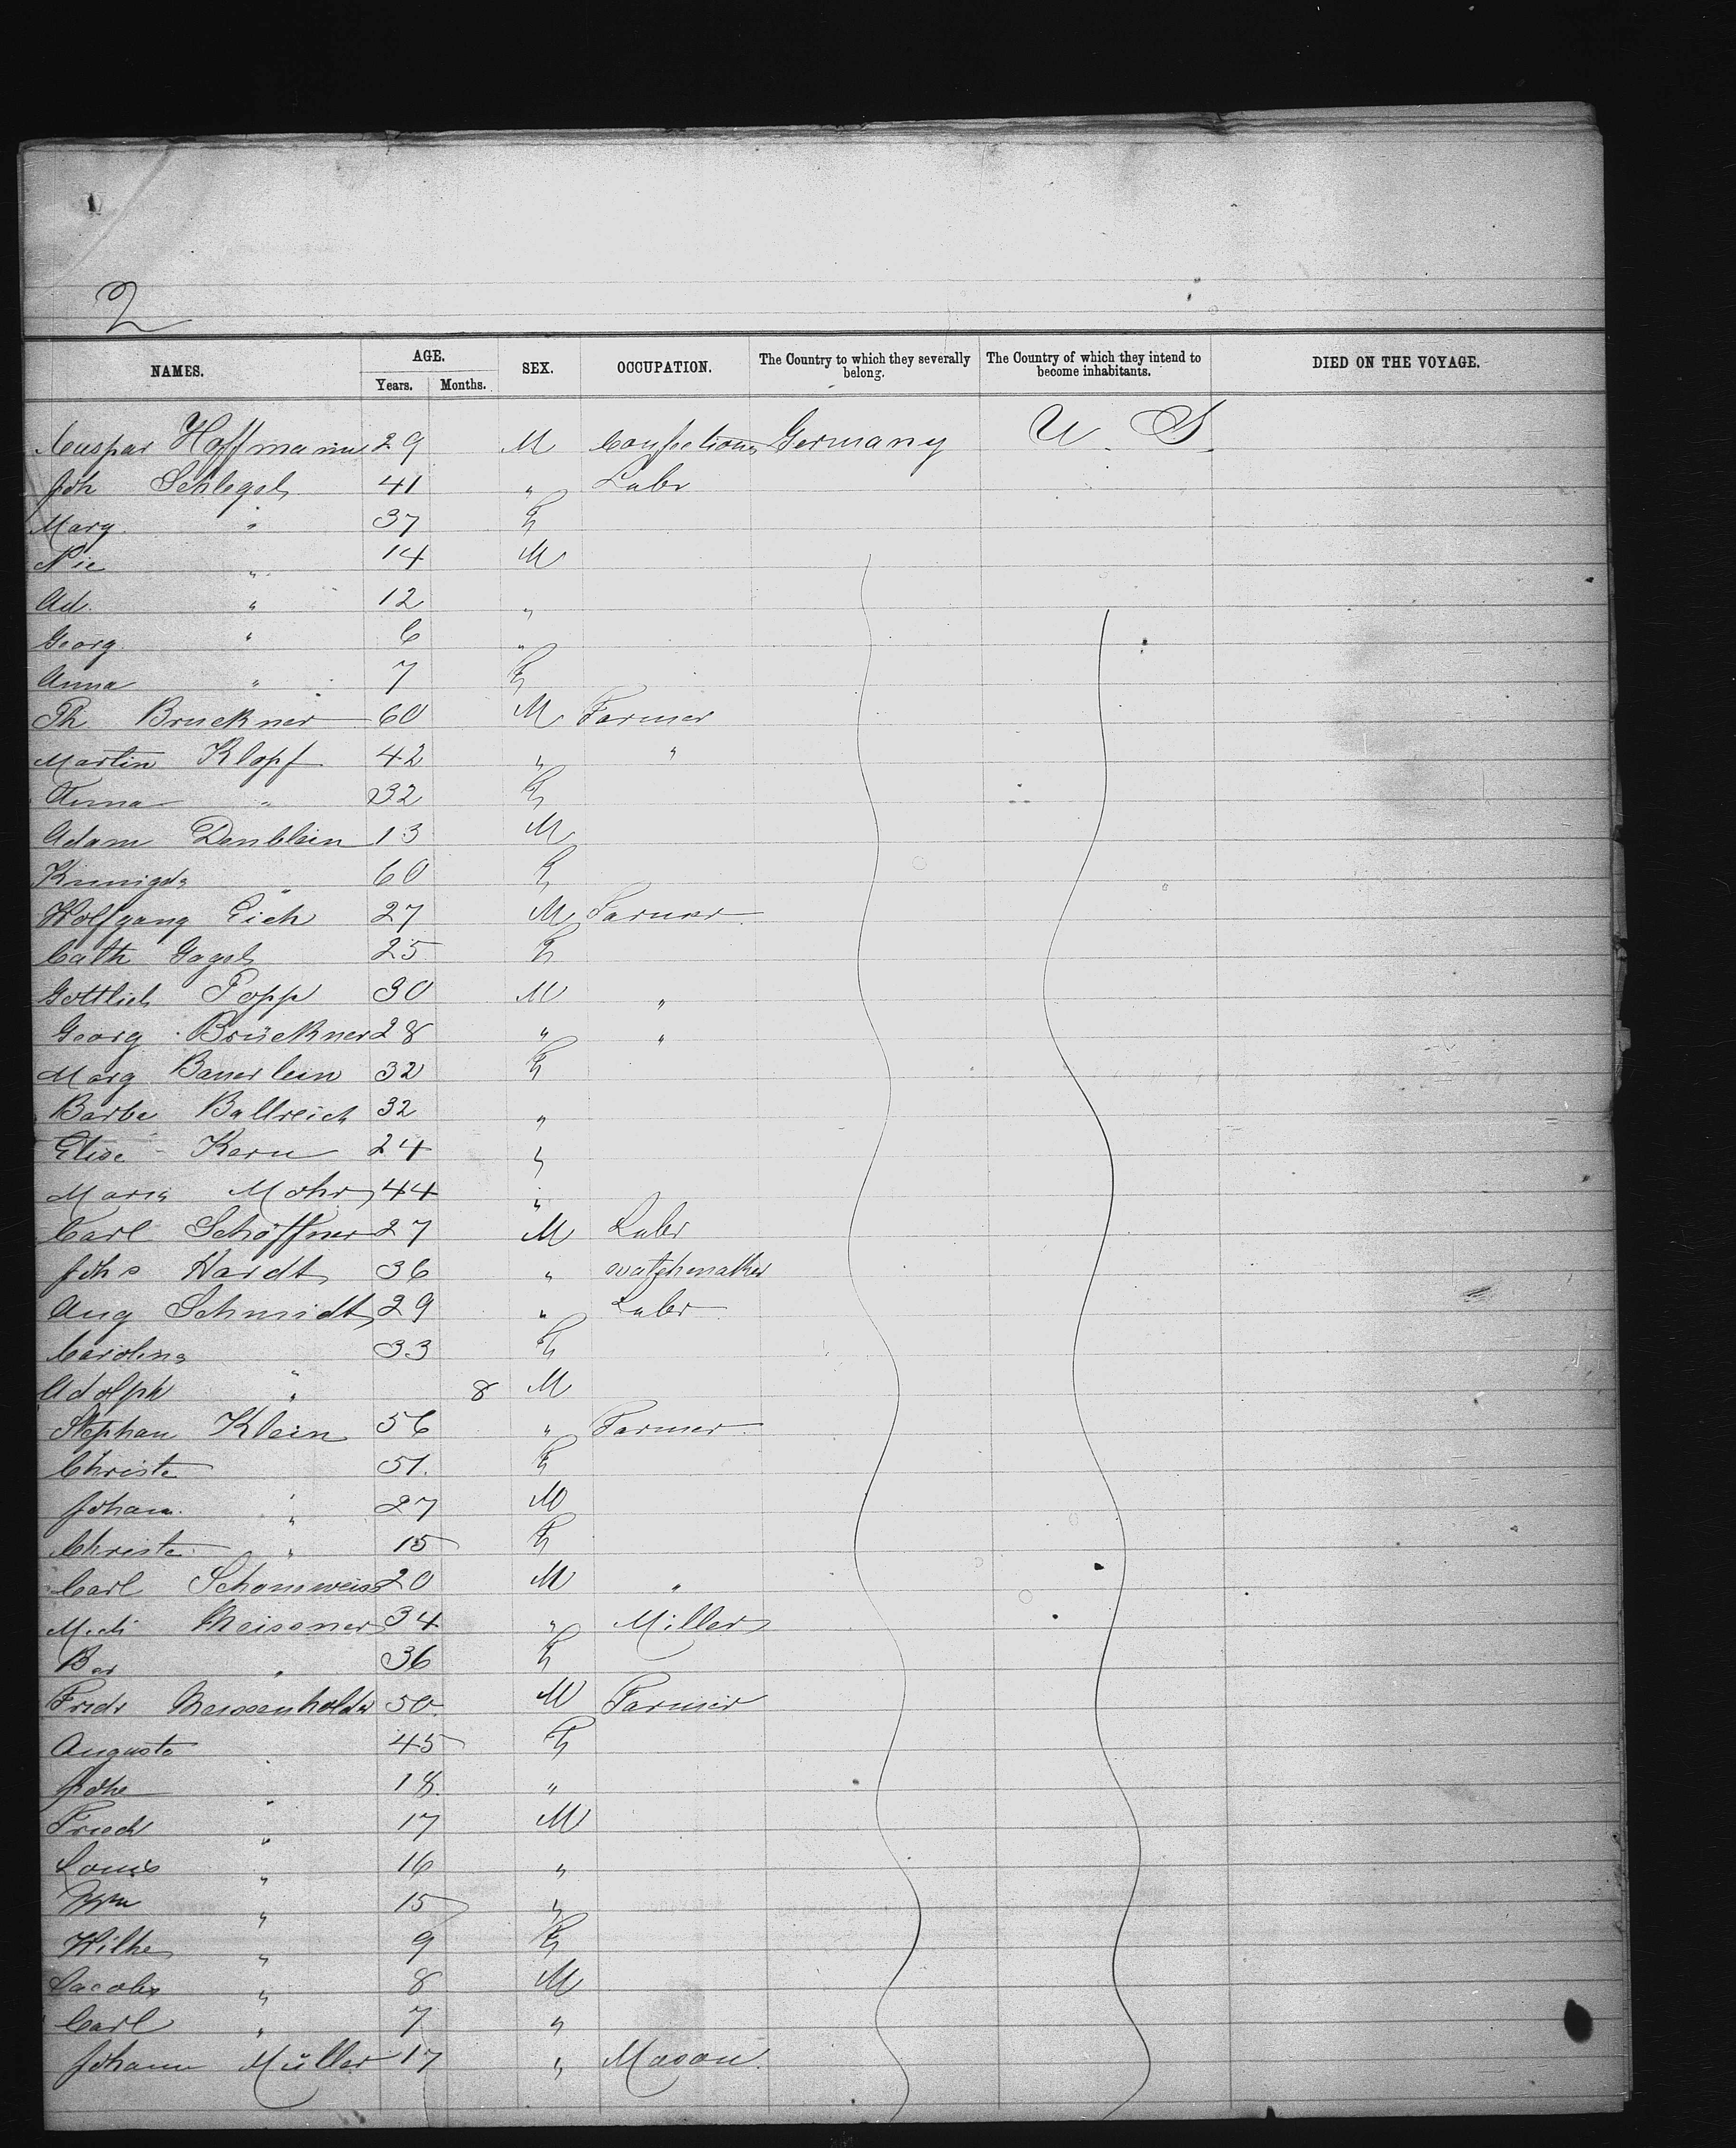 2
NAMES. AGE. Years. Months. SEX. OCCUPATION. The Country to which they severally belong. The Country of which they intend to become inhabitants. DIED ON THE VOYAGE.
Caspar Hoffmann 29 M Confection Germany U. S.
Joh Schlegel 41 " Labr
Marg " 37 F
Nic " 14 M
Ad. " 12 "
Georg " 6 "
Anna " 7 F
Th Bruckner 60 M Farmer
Martin Klopf 42 " "
Anna " 32 F
Adam Denblein 13 M
Kunigda " 60 F
Wolfgang Eich 27 M Farmer
Cath Gagel 25 F
Gottlieb Popp 30 M "
Georg Brückner 28 " "
Marg Bauerlein 32 F
Barba Ballreich 32 "
Elise Kern 24 "
Maria Mohr 44 "
Carl Schöffner 27 M Labr
Johs Hardt 36 " watchmaker
Aug Schmidt 29 " Labr
Carolina " 33 F
Adolph " 8 M
Stephan Klein 56 " Farmer
Christe " 51 F
Johann " 27 M
Christe " 15 F
Carl 20 M "
Mich Meissner 34 " Miller
Bar " 36 F
Fredr 50 M Farmer
Auguste " 45 F
Johe " 18 "
Friedr " 17 M
Louis " 16 "
Wm " 15 "
Wilhe " 9 F
Jacob " 8 M
Carl " 7 "
Johann Müller 17 " Mason